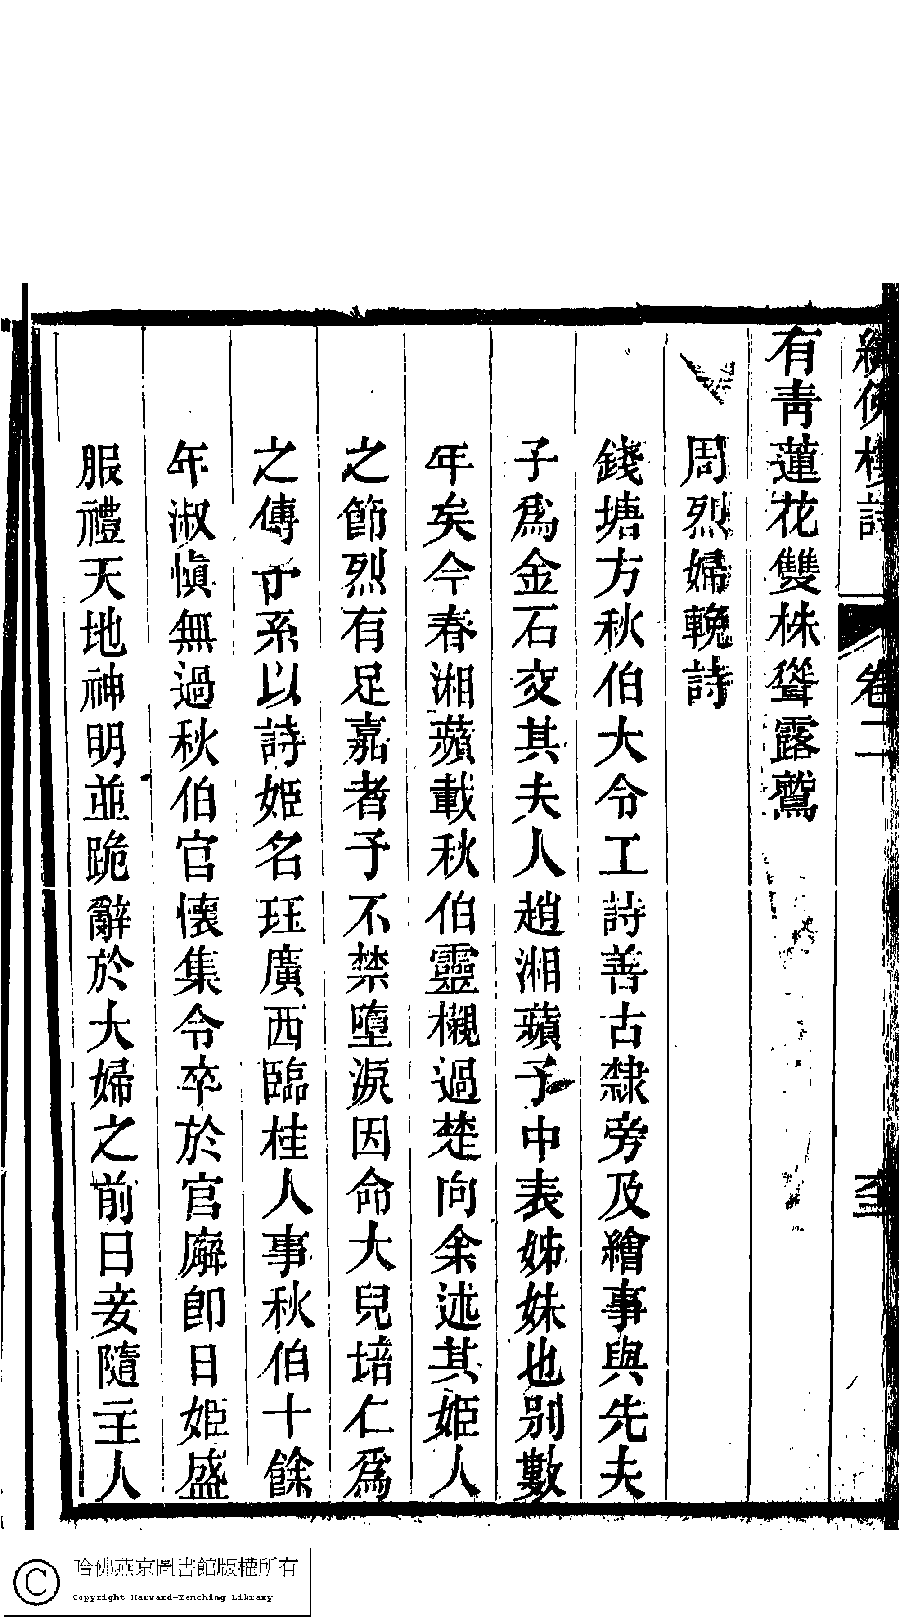 繡佛樓詩 卷二
有青蓮花雙株聳露鷺
周烈婦輓詩
錢塘方秋伯大令工詩善古隸旁及繪事與先夫
子爲金石交其夫人趙湘蘋予中表姊妹也別數
年矣今春湘蘋載秋伯靈櫬過楚向余述其姬人
之節烈有足嘉者予不禁墮淚因命大兒培仁爲
之傳予系以詩姬名珏廣西臨桂人事秋伯十餘
年淑慎無過秋伯官懷集令卒於官廨卽日姬盛
服禮天地神明並跪辭於大婦之前曰妾隨主人
哈佛燕京圖書館版權所有
Copyright Harvard-Yenching Library